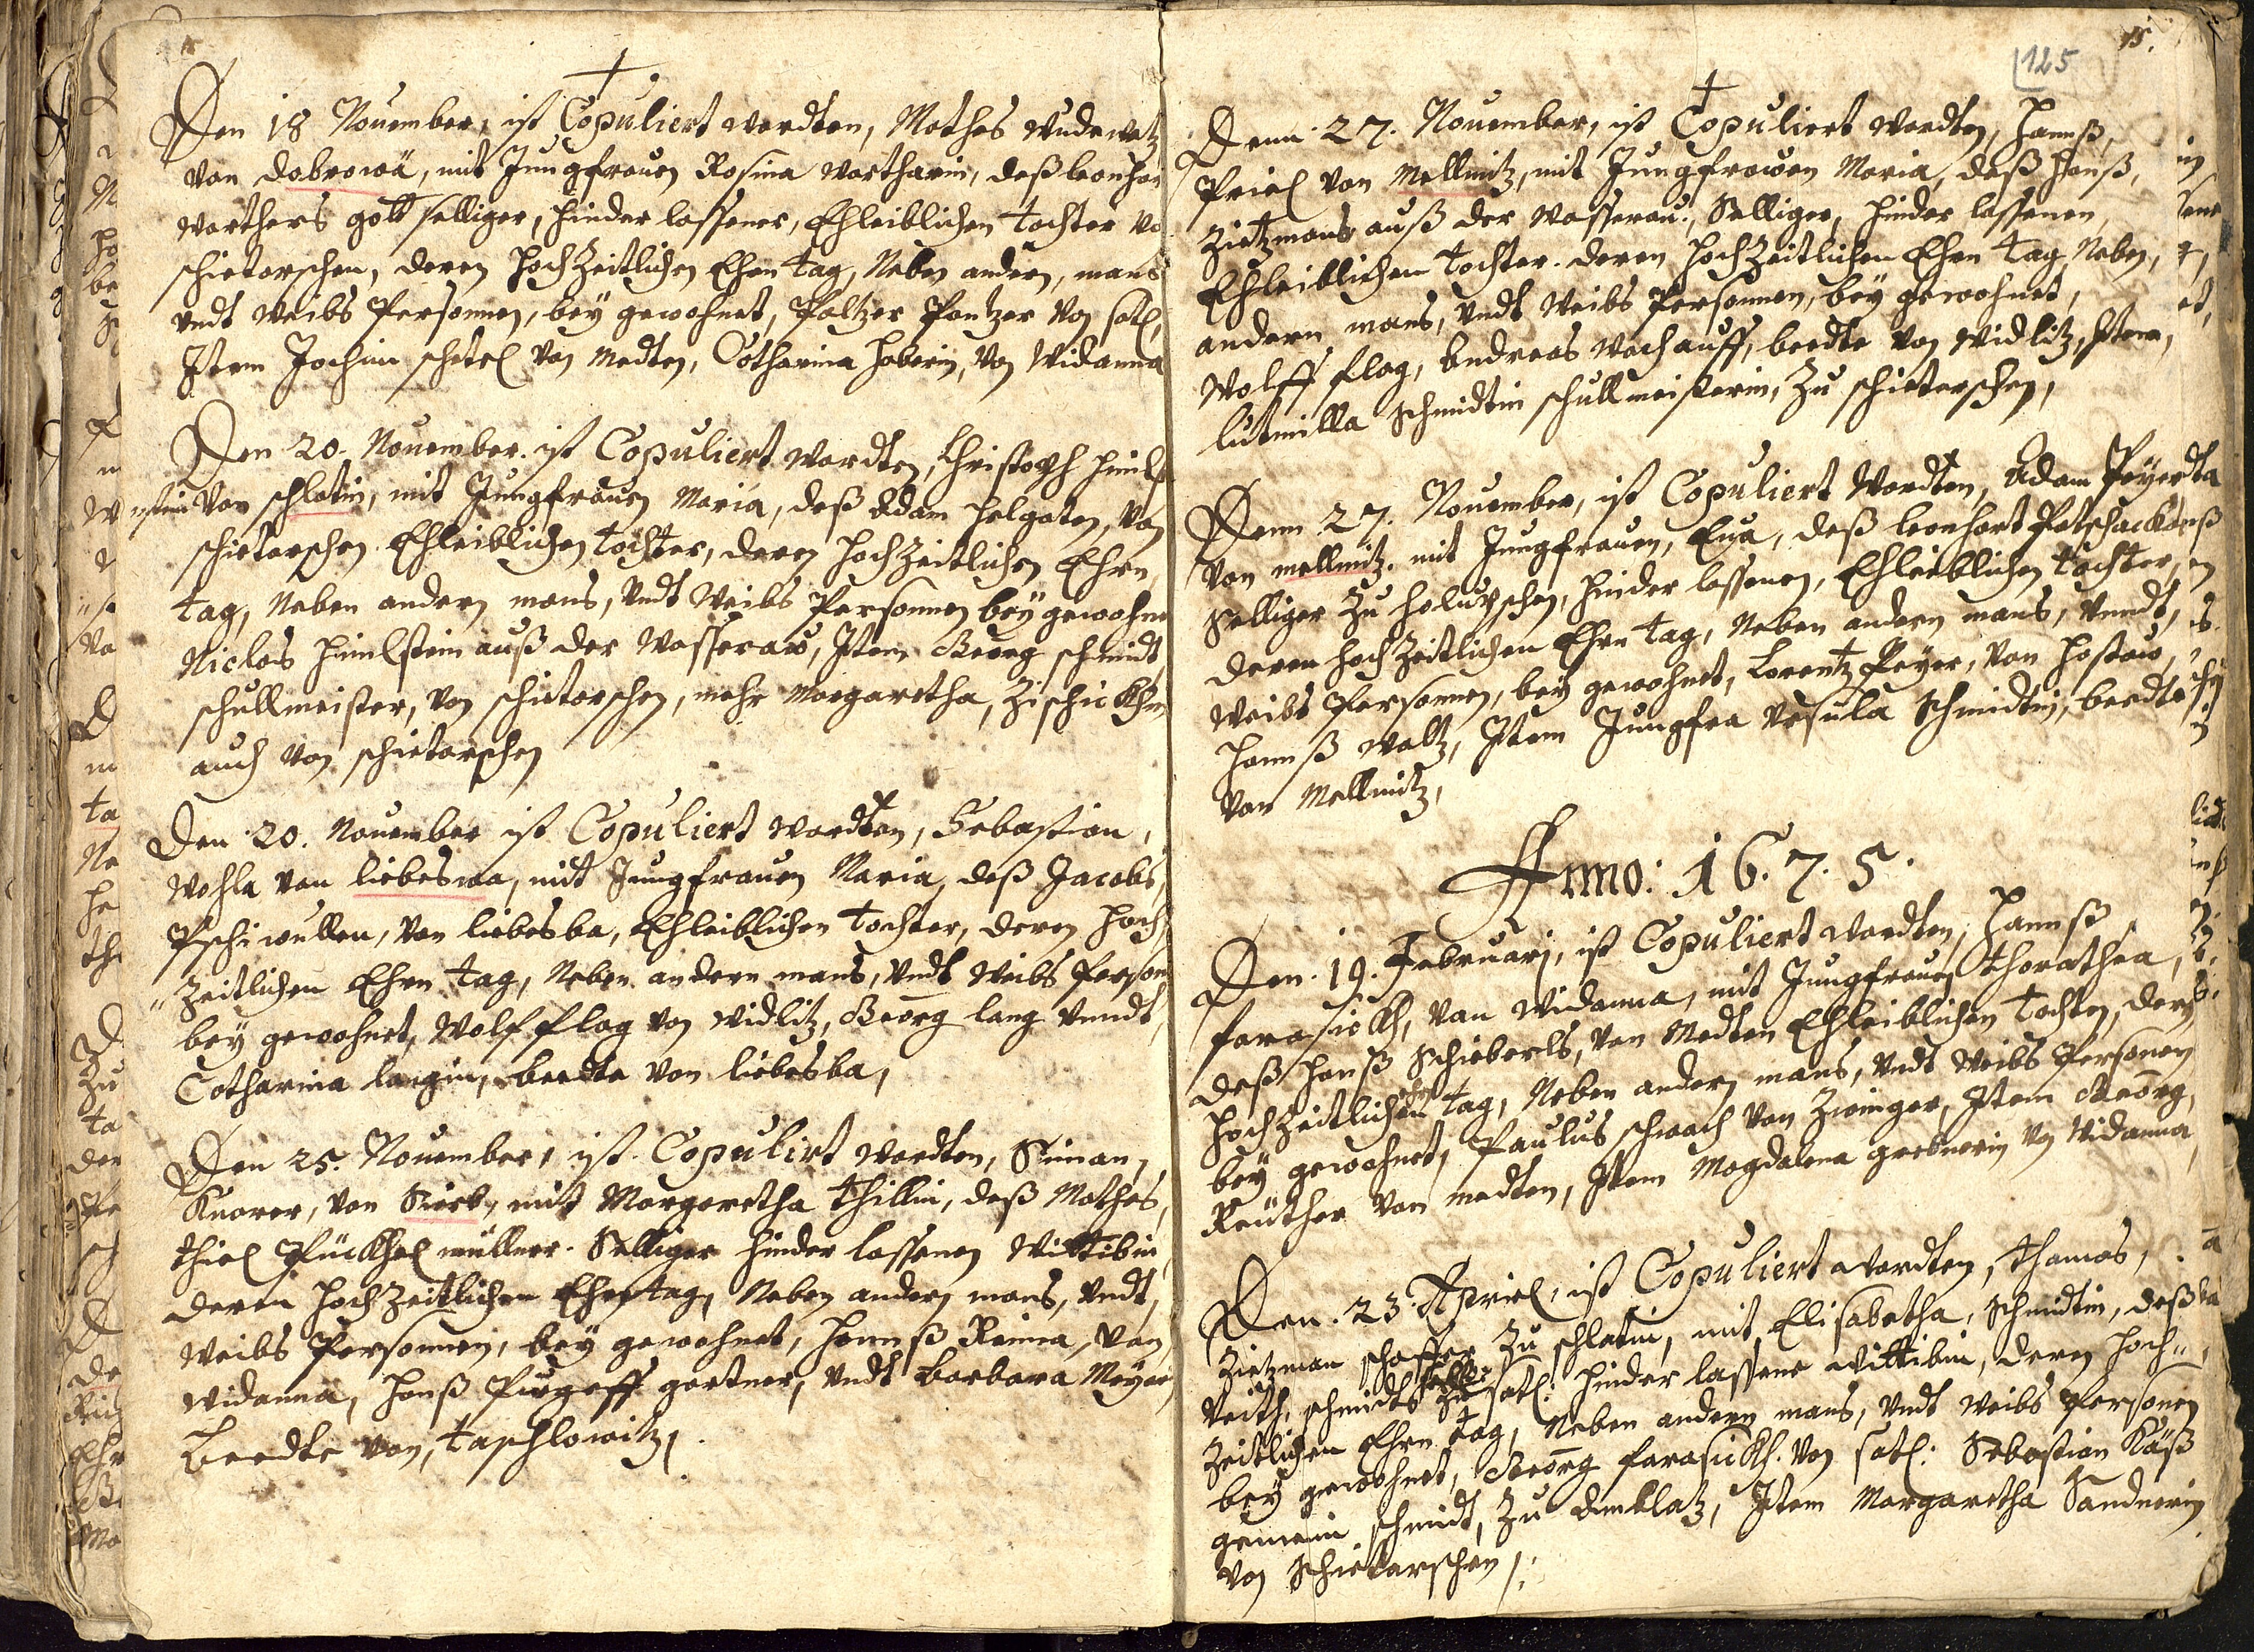 Den 18 November, ist Copuliert wordten, Mathes Wudawatz
von dobrowa, mit Jungfrauen Rosina Wartharin, deß leonhar
Warthers gott selliger, hinder lassener, Ehleiblichen tochter vo
schietarschen, deren hochZeitlichen Ehrn tag, Neben andern, mans
vndt Weibs Personnen, bey gewohnet, Paltzer Pantzer von satl,
Item Jochim schetel von medten, Catharina haberin, von Widanna
Den 20. November. ist Copuliert wordten, Christoph himl
stein von schlatin, mit Jungfrauen Maria, deß Adam helgaten, von
schietarschen Ehleiblichen tochter, deren hochZeitlichen Ehrn
tag, Neben andern mans, vndt Weibs Personnen bey gewohnet
Niclas himlstein auß der Wasseraw, Item Georg schmidt
schullmeister, von schietarschen, mehr Margaretha, Zischickhin
auch von schietarschen
Den 20. November ist Copuliert wordten, Sebastian,
Wohla von liebeswa, mit Jungfrauen Maria, deß Jacobs,
Pschiwullen, von liebesba, Ehleiblichen tochter, deren hoch
Zeitlichen Ehrn tag, Neben andern mans, vndt Weibs Person
bey gewohnet, Wolf flag von Widlitz, Georg lang vnndt,
Catharina langin, beedte von liebesba,
Den 25. November, ist Copulirt wordten, Siman,
Knorer, von Sirb, mit Margaretha thillin, deß Mathes,
thiel Pückhel müllner. Selliger hinder lassenen Wittibin,
deren hochZeitlichen Ehrn tag, Neben andern mans, vndt,
Weibs Personnen, bey gewohnet, Hannß Reinna, von,
Widanna, hanß Purgaff gertner, vndt Barbara Mayerin,
beedte von, taschlowitz,
125 15.
Denn 27. November, ist Copuliert wordten, Hannß,
Priel von Mellnitz, mit Jungfrawen Maria, deß Hanß,
Zietzmans auß der Wasserau., Selliger, hinder lassenen,
Ehleiblichen tochter. deren hochZeitlichen Ehrn tag, Neben,
andern mans, vndt Weibs Personnen, bey gewohnet,
Wolff flag, Andreas Wochauff, beedte von Widlitz, Item,
lutmilla Schmidtin schullmeisterin, Zu schietarschen,
Denn 27. November, ist Copuliert Wordten, Adam Peyerdta
von mellnitz. mit Jungfrauen, Eva, deß leonhart Patschackh
Selliger Zu holuschen, hinder lassenen, Ehleiblichen tochter,
deren hochZeitlichen Ehrn tag, Neben andern mans, vnndt,
Weibs Personnen, bey gewohnet, Lorentz Peyer, von hostaw,
Hannß Waltz, Item Jungfra Vrsula Schmidtin, beedte
von Mellnitz,
Anno: 1 6. 7. 5.
Den. 19. Februarj, ist Copuliert wordten, Hannß
farasickh, von Widanna, mit Jungfrauen thorathea,
deß Hanß Schieberls, von Medten Ehleiblichen tochter, deren
HochZeitlichen tag, Neben andern mans, vndt Weibs Personen
bey gewohnet, Paulus schwach von Zwinger, Item Georg,
Reuther von medten, Item Magdalena grebnerin von Widanna
Den. 23. Apriel, ist Copuliert wordten, thamas,
Zietzman schaffer Zu schlatin, mit, Elisabetha, Schmidtin, deß
Veith, schmidts Zu satl: hinder lassene Wittibin, deren hoch-
Zeitlichen Ehrn tag, Neben andern mans, vndt Weibs Personen
bey gewohnet, Georg farasickh. von satl: Sebastian Käß
gemein schmidt, Zu Amblatz, Item Margaretha Sandnerin
von Schietarschen,